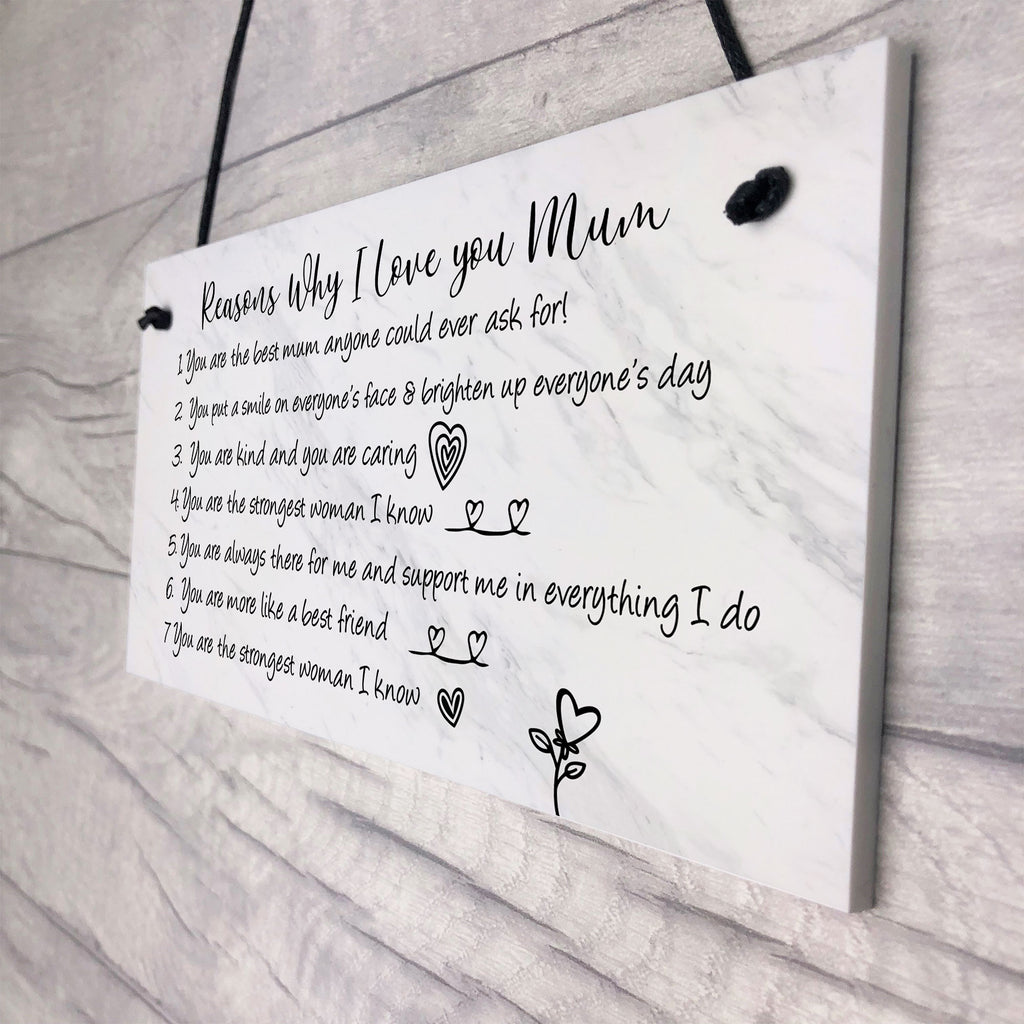 Reasons Why I Love you Mum
1 You are the best mum anyone could ever ask for!
2 You put a smile on everyone's face & brighten up everyone's day
3. You are kind and you are caring
4. You are the strongest woman I know
5. You are always there for me and support me in everything I do
6. You are more like a best friend
7 You are the strongest woman I know